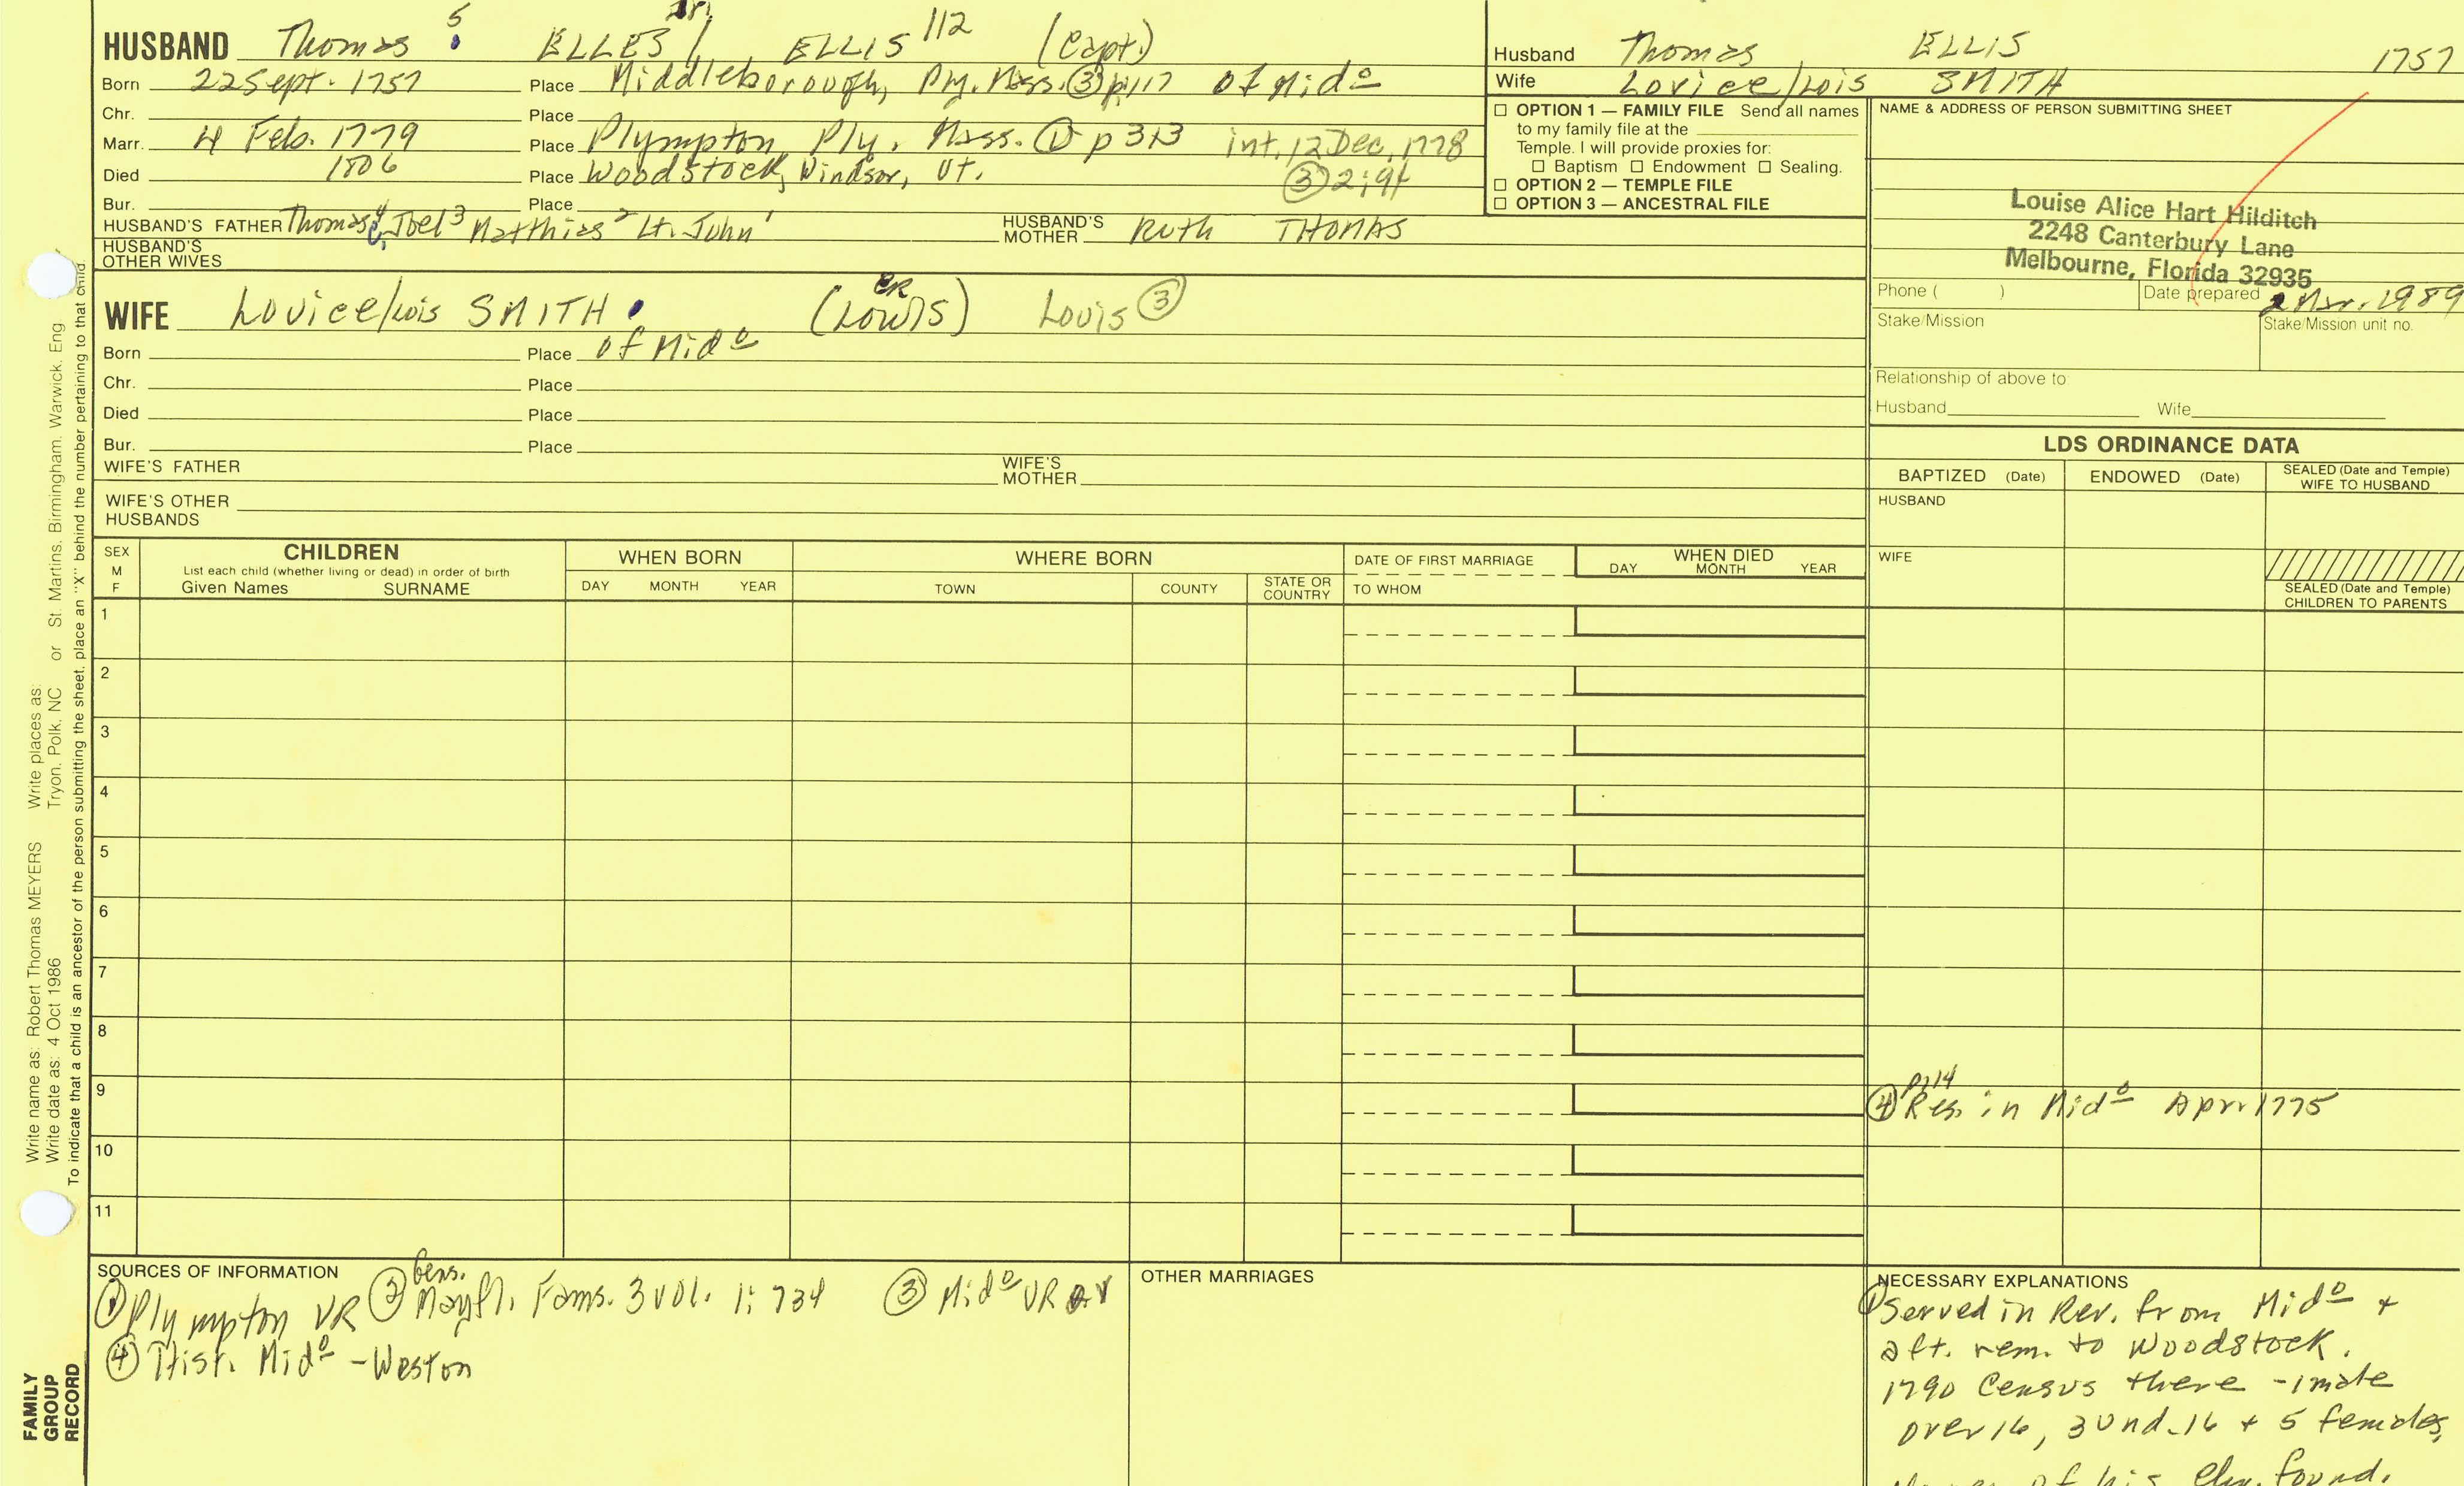 HUSBAND Thomas 5 ELLES Jr. / ELLIS 112 (Capt.)
Born 22 Sept. 1757 Place Middleborough, Ply. Mass. ③ p. 117 of Mid o
Chr. Place
Marr. 4 Feb. 1779 Place Plympton, Ply. Mass. ① p 313 int. 12 Dec. 1778
Died 1806 Place Woodstock, Windsor, Vt. ③ 2:91
Bur. Place
HUSBAND'S FATHER Thomas 4 Joel 3 Matthias 2 Lt. John 1 HUSBAND'S MOTHER Ruth THOMAS
HUSBAND'S OTHER WIVES
WIFE Lovice/Lois SMITH (Lowis) Louis ③
Born Place of Mid o
Chr. Place
Died Place
Bur. Place
WIFE'S FATHER WIFE'S MOTHER
WIFE'S OTHER HUSBANDS
Husband Thomas ELLIS 1757
Wife Lovice/Lois SMITH
☐ OPTION 1 — FAMILY FILE Send all names
to my family file at the
Temple. I will provide proxies for:
☐ Baptism ☐ Endowment ☐ Sealing.
☐ OPTION 2 — TEMPLE FILE
☐ OPTION 3 — ANCESTRAL FILE
NAME & ADDRESS OF PERSON SUBMITTING SHEET
Louise Alice Hart Hilditch
2248 Canterbury Lane
Melbourne, Florida 32935
Phone ( ) Date prepared 2 Mar. 1989
Stake/Mission Stake/Mission unit no.
Relationship of above to:
Husband Wife
LDS ORDINANCE DATA
BAPTIZED (Date) ENDOWED (Date) SEALED (Date and Temple) WIFE TO HUSBAND
HUSBAND
WIFE
SEALED (Date and Temple)
CHILDREN TO PARENTS
SEX M F
CHILDREN
List each child (whether living or dead) in order of birth
Given Names SURNAME
WHEN BORN
DAY MONTH YEAR
WHERE BORN
TOWN COUNTY STATE OR COUNTRY
DATE OF FIRST MARRIAGE
TO WHOM
WHEN DIED
DAY MONTH YEAR
1
2
3
4
5
6
7
8
9
10
11
p 114
④ Res. in Mid o Apr. 1775
SOURCES OF INFORMATION
① Plympton VR ② Gens. Mayfl. Fams. 3 vol. 1: 734 ③ Mid o VR
④ Hist. Mid o - Weston
OTHER MARRIAGES
NECESSARY EXPLANATIONS
① Served in Rev. from Mid o +
aft. rem. to Woodstock.
1790 Census there - 1 male
over 16, 3 und. 16 + 5 females,
of his found.
Write name as: Robert Thomas MEYERS Write places as:
Write date as: 4 Oct 1986 Tryon, Polk, NC or St. Martins, Birmingham, Warwick, Eng
To indicate that a child is an ancestor of the person submitting the sheet, place an "X" behind the number pertaining to that child.
FAMILY
GROUP
RECORD